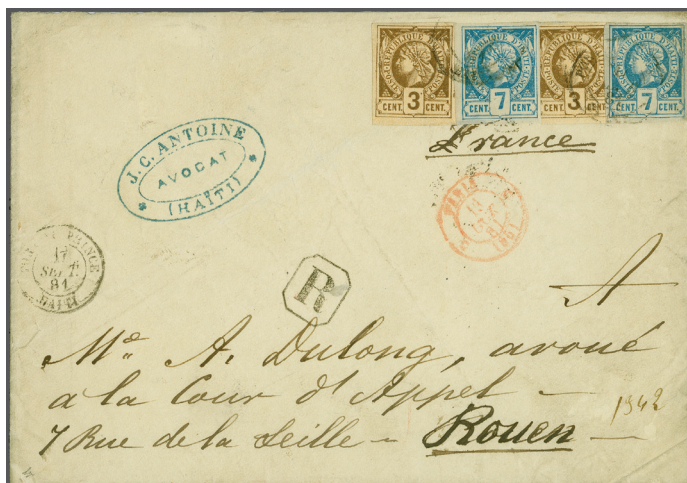 RÉPUBLIQUE D'HAITI
CENT. 3 CENT.
RÉPUBLIQUE D'HAITI
CENT. 7 CENT.
RÉPUBLIQUE D'HAITI
CENT. 3 CENT.
RÉPUBLIQUE D'HAITI
CENT. 7 CENT.
France
J. C. ANTOINE
AVOCAT
(HAÏTI)
PARIS
PORT AU PRINCE
17
SEPT.
81
HAITI
R
A
Me. A. Dulong, avoué
a la Cour d'Appel —
7 Rue de la Seille — Rouen —
1942